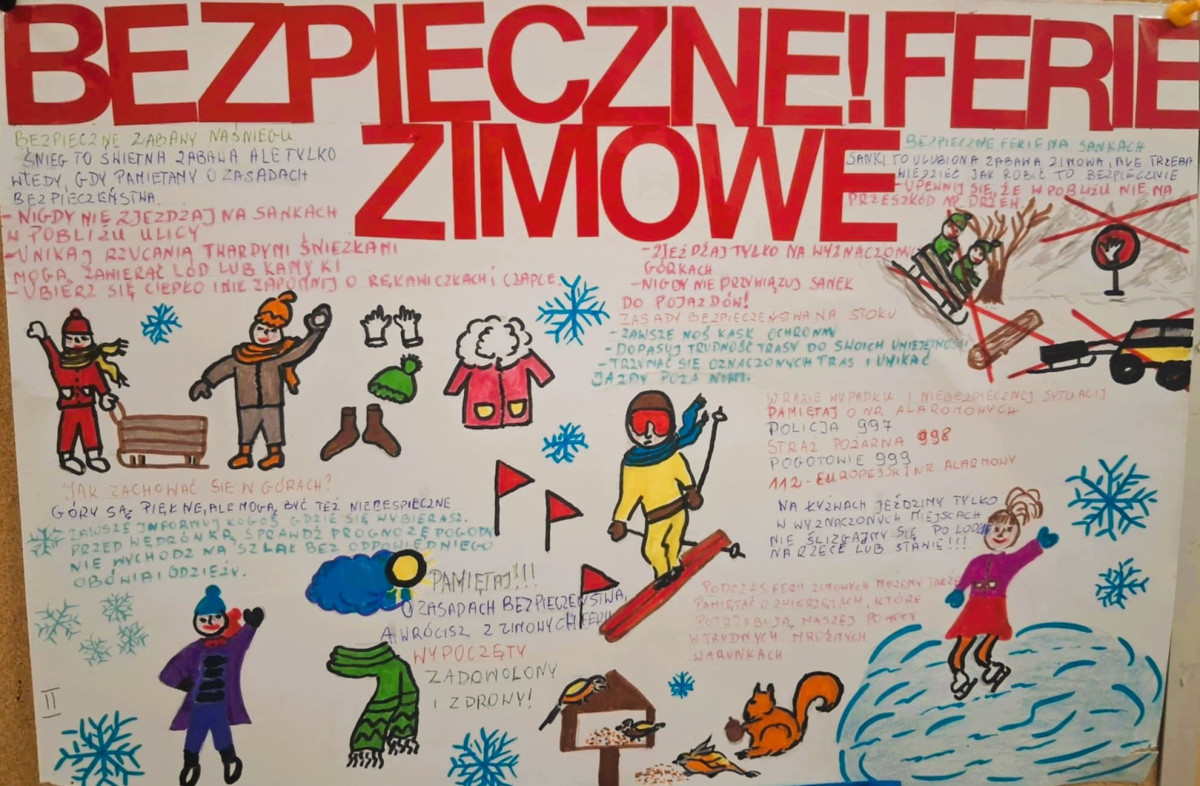 BEZPIECZNE! FERIE
ZIMOWE
BEZPIECZNE ZABAWY NA ŚNIEGU
ŚNIEG TO ŚWIETNA ZABAWA ALE TYLKO
WTEDY, GDY PAMIĘTAMY O ZASADACH
BEZPIECZEŃSTWA.
- NIGDY NIE ZJEŻDŻAJ NA SANKACH
W POBLIŻU ULICY
- UNIKAJ RZUCANIA TWARDYMI ŚNIEŻKAMI
MOGĄ ZAWIERAĆ LÓD LUB KAMYKI
- UBIERZ SIĘ CIEPŁO I NIE ZAPOMNIJ O RĘKAWICZKACH I CZAPCE
BEZPIECZNE FERIE NA SANKACH
SANKI TO ULUBIONA ZABAWA ZIMOWA, ALE TRZEBA
WIEDZIEĆ JAK ROBIĆ TO BEZPIECZNIE
- UPEWNIJ SIĘ, ŻE W POBLIŻU NIE MA
PRZESZKÓD NP. DRZEW
- ZJEŻDŻAJ TYLKO NA WYZNACZONYCH
GÓRKACH
- NIGDY NIE PRZYWIĄZUJ SANEK
DO POJAZDÓW!
ZASADY BEZPIECZEŃSTWA NA STOKU
- ZAWSZE NOŚ KASK OCHRONNY
- DOPASUJ TRUDNOŚĆ TRASY DO SWOICH UMIEJĘTNOŚCI
- TRZYMAĆ SIĘ OZNACZONYCH TRAS I UNIKAĆ
JAZDY POZA NIMI.
W RAZIE WYPADKU I NIEBEZPIECZNEJ SYTUACJI
PAMIĘTAJ O NR. ALAROMOWYCH
POLICJA 997
STRAŻ POŻARNA 998
POGOTOWIE 999
112 - EUROPEJSKI NR. ALARMOWY
JAK ZACHOWAĆ SIĘ W GÓRACH?
GÓRY SĄ PIĘKNE, ALE MOGĄ BYĆ TEŻ NIEBESPIECZNE
ZAWSZE INFORMUJ KOGOŚ GDZIE SIĘ WYBIERASZ.
PRZED WĘDRÓWKĄ, SPRAWDŹ PROGNOZĘ POGODY
NIE WYCHODŹ NA SZLAK BEZ ODPOWIEDNIEGO
OBUWIA I ODZIEŻY.
NA ŁYŻWACH JEŹDZIMY TYLKO
W WYZNACZONYCH MIEJSCACH
NIE ŚLIZGAJMY SIĘ PO LODZIE
NA RZECE LUB STAWIE!!!!
PAMIĘTAJ!!!
O ZASADACH BEZPIECZEŃSTWA,
A WRÓCISZ Z ZIMOWYCH FERII
WYPOCZĘTY
ZADOWOLONY
I ZDROWY!
PODCZAS FERII ZIMOWYCH MOŻEMY TAKŻE
PAMIĘTAĆ O ZWIERZĘTACH, KTÓRE
POTRZEBUJĄ NASZEJ POMOCY
W TRUDNYCH MROŹNYCH
WARUNKACH
II